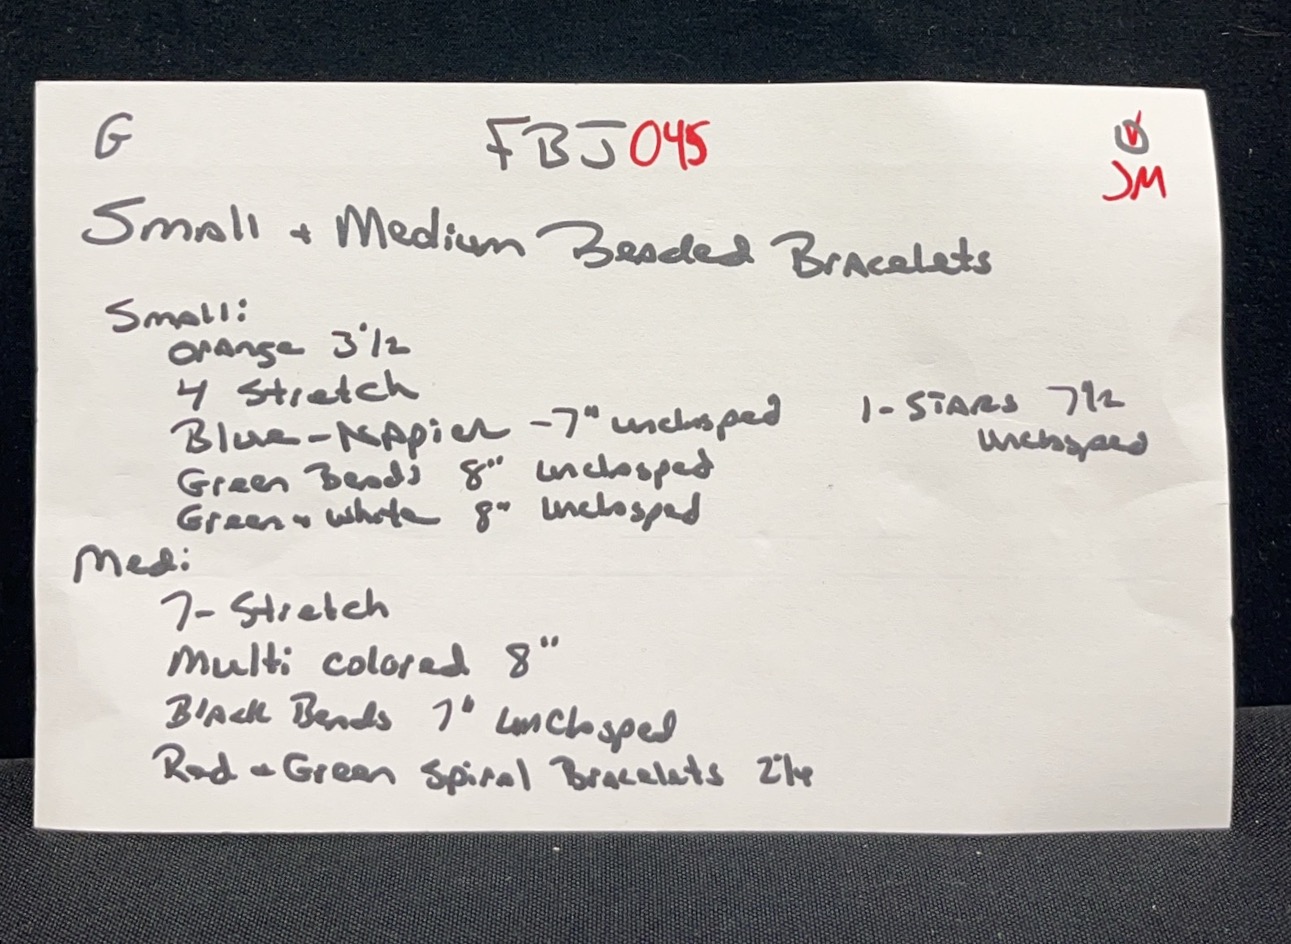 G FBJ045
JM
Small + Medium Beaded Bracelets
Small:
Orange 3 1/2
4 Stretch
Blue-Napier -7" unclasped
1- STARS 7 1/2
unclasped
Green Beads 8" unclasped
Green + white 8" unclasped
Med:
7- Stretch
Multi colored 8"
Black Beads 7" unclasped
Red + Green Spiral Bracelets 2 1/4